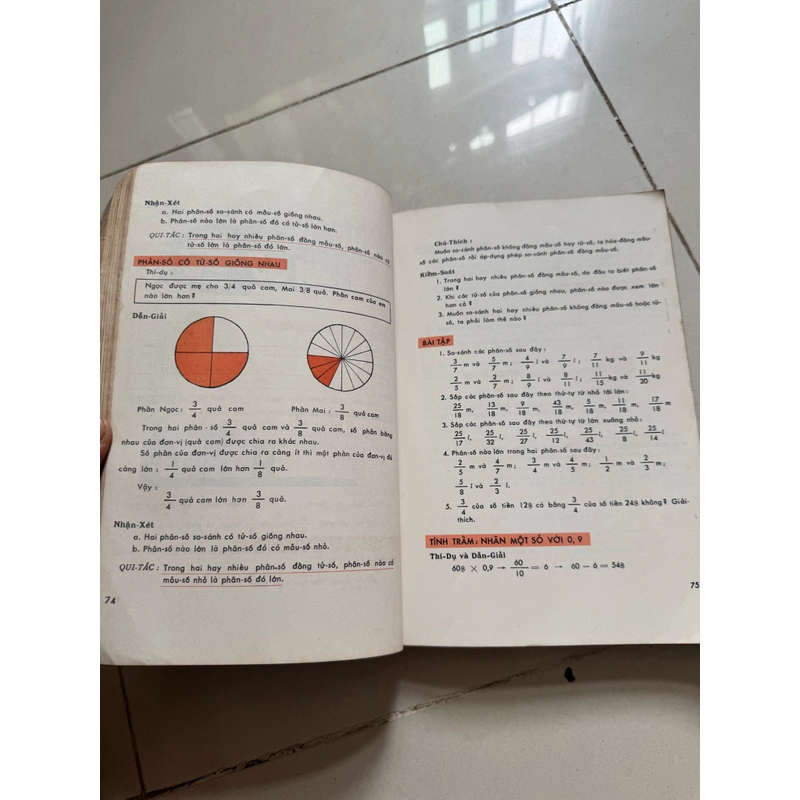 Nhận-Xét
a. Hai phân-số so-sánh có mẫu-số giống nhau.
b. Phân-số nào lớn là phân-số đó có tử-số lớn hơn.
QUI-TẮC : Trong hai hay nhiều phân-số đồng mẫu-số, phân-số nào có
tử-số lớn là phân-số đó lớn.
PHÂN-SỐ CÓ TỬ-SỐ GIỐNG NHAU
Thí-dụ :
Ngọc được mẹ cho 3/4 quả cam, Mai 3/8 quả. Phần cam của em
nào lớn hơn ?
Dẫn-Giải
Phần Ngọc : 3/4 quả cam Phần Mai : 3/8 quả cam
Trong hai phân - số 3/4 quả cam và 3/8 quả cam, số phần bằng
nhau của đơn-vị (quả cam) được chia ra khác nhau.
Số phần của đơn-vị được chia ra càng ít thì một phần của đơn-vị đó
càng lớn : 1/4 quả cam lớn hơn 1/8 quả.
Vậy : 3/4 quả cam lớn hơn 3/8 quả.
Nhận-Xét
a. Hai phân-số so-sánh có tử-số giống nhau.
b. Phân-số nào lớn là phân-số đó có mẫu-số nhỏ.
QUI-TẮC : Trong hai hay nhiều phân-số đồng tử-số, phân-số nào có
mẫu-số nhỏ là phân-số đó lớn.
74
Chú-Thích :
Muốn so-sánh phân-số không đồng mẫu-số hay tử-số, ta hóa-đồng mẫu-
số các phân-số rồi áp-dụng phép so-sánh phân-số đồng mẫu-số.
Kiểm-Soát
1. Trong hai hay nhiều phân-số đồng mẫu-số, do đâu ta biết phân-số
lớn ?
2. Khi các tử-số của phân-số giống nhau, phân-số nào được xem lớn
hơn cả ?
3. Muốn so-sánh hai hay nhiều phân-số không đồng mẫu-số hoặc tử-
số, ta phải làm thế nào ?
BÀI TẬP
1. So-sánh các phân-số sau đây :
3/7 m và 5/7 m ; 4/9 l và 7/9 l ; 7/11 kg và 9/11 kg
2/5 m và 2/7 m ; 8/9 l và 8/11 l ; 11/15 kg và 11/20 kg
2. Sắp các phân-số sau đây theo thứ-tự từ nhỏ tới lớn :
25/18 m, 13/18 m, 9/18 m, 43/18 m, 5/18 m, 11/18 m, 17/18 m
3. Sắp các phân-số sau đây theo thứ-tự từ lớn xuống nhỏ :
25/17 l, 25/32 l, 25/27 l, 25/12 l, 25/43 l, 25/8 l, 25/14 l
4. Phân-số nào lớn trong hai phân-số sau đây :
2/5 m và 4/7 m ; 3/4 m và 4/5 m ; 1/2 m và 2/3 m ;
5/8 l và 2/3 l.
5. 3/4 của số tiền 12$ có bằng 3/4 của số tiền 24$ không ? Giải-
thích.
TÍNH TRẦM : NHÂN MỘT SỐ VỚI 0, 9
Thí-Dụ và Dẫn-Giải
60$ × 0,9 → 60/10 = 6 → 60 – 6 = 54$
75